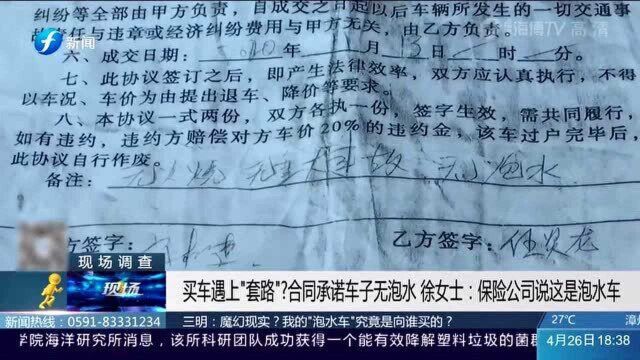 海博TV 高清
新闻
纠纷等全部由甲方负责,自成交之日起以后车辆所发生的一切交通事
故责任与违章或经济纠纷费用与甲方无关,由乙方负责。
六、成交日期: 年 月 13 日 时 分。
七、此协议签订之后,即产生法律效率,双方应认真执行,不得
以车况、车价为由提出退车、降价等要求。
八、本协议一式两份,双方各执一份,签字生效,需共同履行,
如有违约,违约方赔偿对方车价20%的违约金;该车过户完毕后,
此协议自行作废。
备注: 无火烧 无重大事故 无泡水
方签字:
乙方签字:
现场调查
现场
买车遇上"套路"?合同承诺车子无泡水 徐女士:保险公司说这是泡水车
新闻热线:0591-83331234
三明:魔幻现实?我的"泡水车"究竟是向谁买的?
27℃
漳
学院海洋研究所消息,该所科研团队成功获得一个能有效降解塑料垃圾的菌群
4月26日 18:38